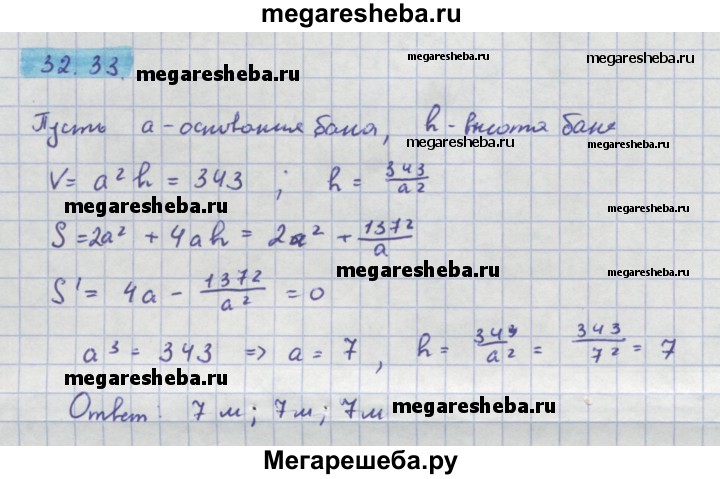 megaresheba.ru
32.33.
megaresheba.ru
megaresheba.ru
Пусть a - основания бака, h - высота бака
megaresheba.ru
V = a² h = 343 ; h = 343/a²
megaresheba.ru
megaresheba.ru
S = 2a² + 4ah = 2a² + 1372/a
megaresheba.ru
S' = 4a - 1372/a² = 0
megaresheba.ru
a³ = 343 => a = 7 , h = 343/a² = 343/7² = 7
megaresheba.ru
Ответ: 7 м; 7 м; 7 м
megaresheba.ru
Мегарешеба.ру